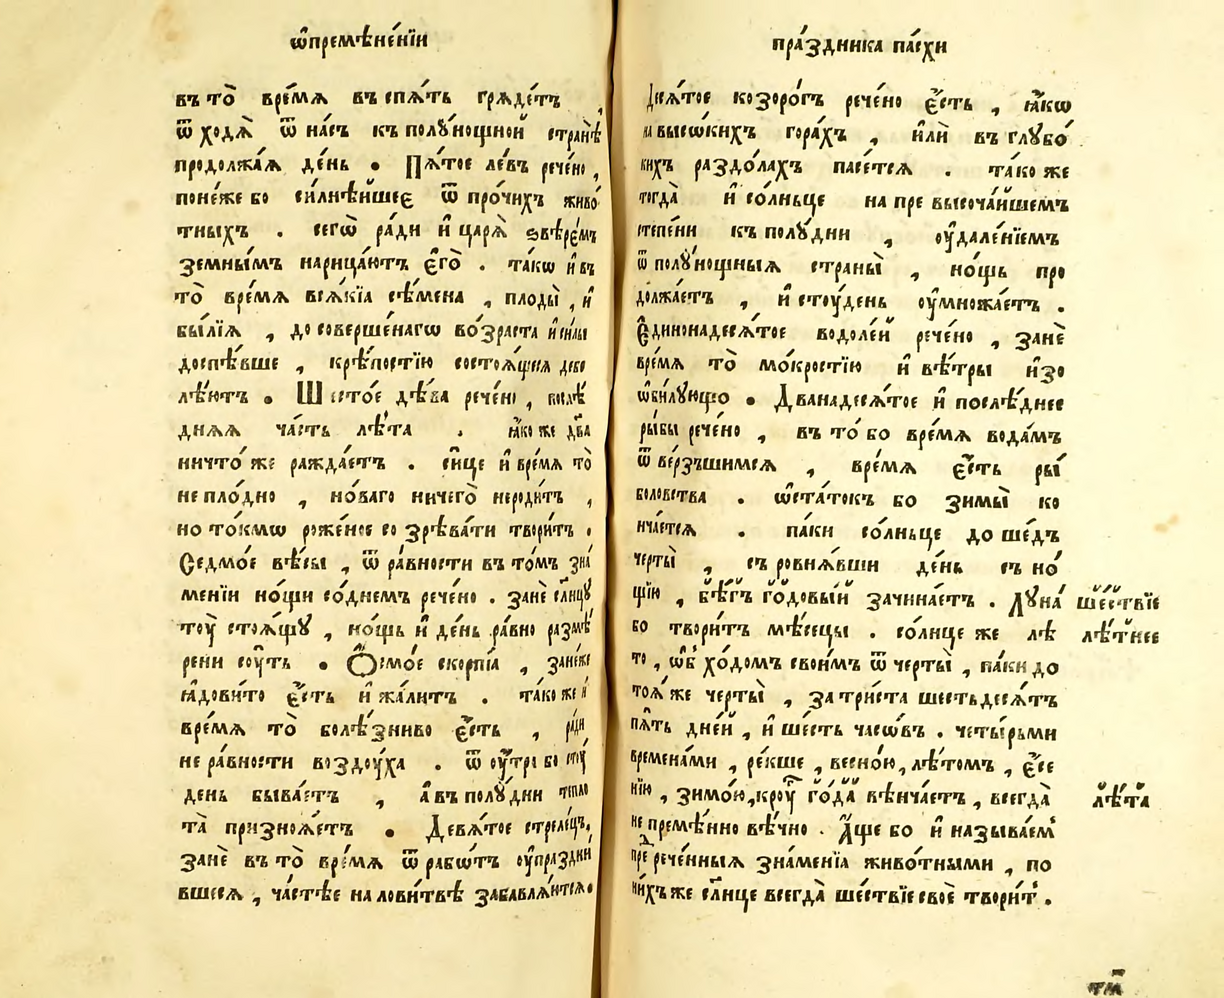 ѡ҆премѣне́нїи
въ то̀ вре́мѧ въспѧ́ть грѧде́тъ ,
ѿ ходѧ̀ ѿ на́съ къ полꙋ́нощной странѣ̀
продолжа́ѧ де́нь . Пѧ́тое ле́въ рече́но ,
поне́же бо си́лнѣйшеє ѿ про́чихъ живо́
тныхъ . сегѡ̀ ра́ди и҆ царѧ̀ ѕвѣре́мъ
земны́мъ нарица́ютъ є҆го̀ . та́кѡ и҆ въ
то̀ вре́мѧ всѧ́кїа сѣ́мена , плоды̀ , и҆
бы́лїѧ , до соверше́нагѡ во́зраста и҆ си́лы
доспѣ́вше , крѣ́постїю состоѧ́щесѧ дебе
лѣ́ютъ . Шесто́е дѣ́ва рече́но , послѣ́
днѧѧ ча́сть лѣ́та . ꙗ҆́ко же дв҃а
ничто́ же ражда́етъ . си́це и҆ вре́мѧ то̀
не пло́дно , но́ваго ничего̀ неро́дитъ ,
но то́кмѡ роже́ное со зрѣва́ти твори́тъ .
Седмо́е вѣ́сы , ѿ ра́вности въ то́мъ зна́
менїи но́щи со́днемъ рече́но . занѐ сл҃нцꙋ
тоу̀ стоѧ́щꙋ , но́щь и҆ де́нь ра́вно размѣ́
рени соу́ть . Осмо́е скорпі́а , зане́же
ꙗ҆дови́то є҆́сть и҆ жа́литъ . та́ко же и҆
вре́мѧ то̀ болѣ́зниво є҆́сть , ра́ди
не ра́вности воздоу́ха . ѿ оу҆́трі бо стоу́
день быва́етъ , а҆ въ полꙋ́дни тепло
та̀ призножѐтъ . Девѧ́тое стреле́цъ,
занѐ въ то̀ вре́мѧ ѿ рабѡ́тъ оу҆праздни́
вшесѧ , ча́стѣе на лови́твѣ забавлѧ́ютсѧ .
пра́здника па́схи
Десѧ́тое козоро́гъ рече́но є҆́сть , ꙗ҆́кѡ
на высѡ́кихъ гора́хъ , и҆лѝ въ глꙋбо́
кихъ раздо́лахъ пасе́тсѧ . та́ко же
тогда̀ и҆ со́лньце на пре высоча́йшемъ
сте́пени къ полꙋ́дни , оу҆дале́нїемъ
ѿ полꙋ́нощныѧ страны̀ , но́щь про
должа́етъ , и҆ стоу́день оу҆множа́етъ .
Є҆динонадесѧ́тое водоле́й рече́но , занѐ
вре́мѧ то̀ мо́кростїю и҆ вѣ́тры и҆зо
ѡ҆би́лꙋющо . Дванадесѧ́тое и҆ послѣ́днее
ры́бы рече́но , въ то́ бо вре́мѧ вода́мъ
ѿ ве́рзъшимсѧ , вре́мѧ є҆́сть ры́
боловства . ѡ҆ста́токъ бо зимы̀ ко
нча́етсѧ . па́ки со́лньце до ше́дъ
черты̀ , съ ровнѧ́вши де́нь съ но́
щїю , бѣ́гъ годовы́й зачина́етъ . Лꙋна́
бо твори́тъ мѣ́сецы . со́лнце же лѣ
то , ѡ҆б̾хо́домъ свои́мъ ѿ черты̀ , па́ки до
тоѧ́ же черты̀ , за три́ста шестьдесѧ́тъ
пѧ́ть дне́й , и҆ ше́сть часѡ́въ . четы́рьми
времена́ми , ре́кше , весно́ю, лѣ́томъ , є҆́се
нїю , зимо́ю, кроу́г го́да вѣнча́етъ , всегда̀
не премѣ́нно вѣ́чно . А҆́ще бо и҆ называ́ем̾
предрече́нныѧ зна́менїа живо́тными , по
ни́хъ же сл҃нце всегда̀ ше́ствїе своѐ твори́т̾ .
ше́ствїе
лѣ́тнее
лѣ́та